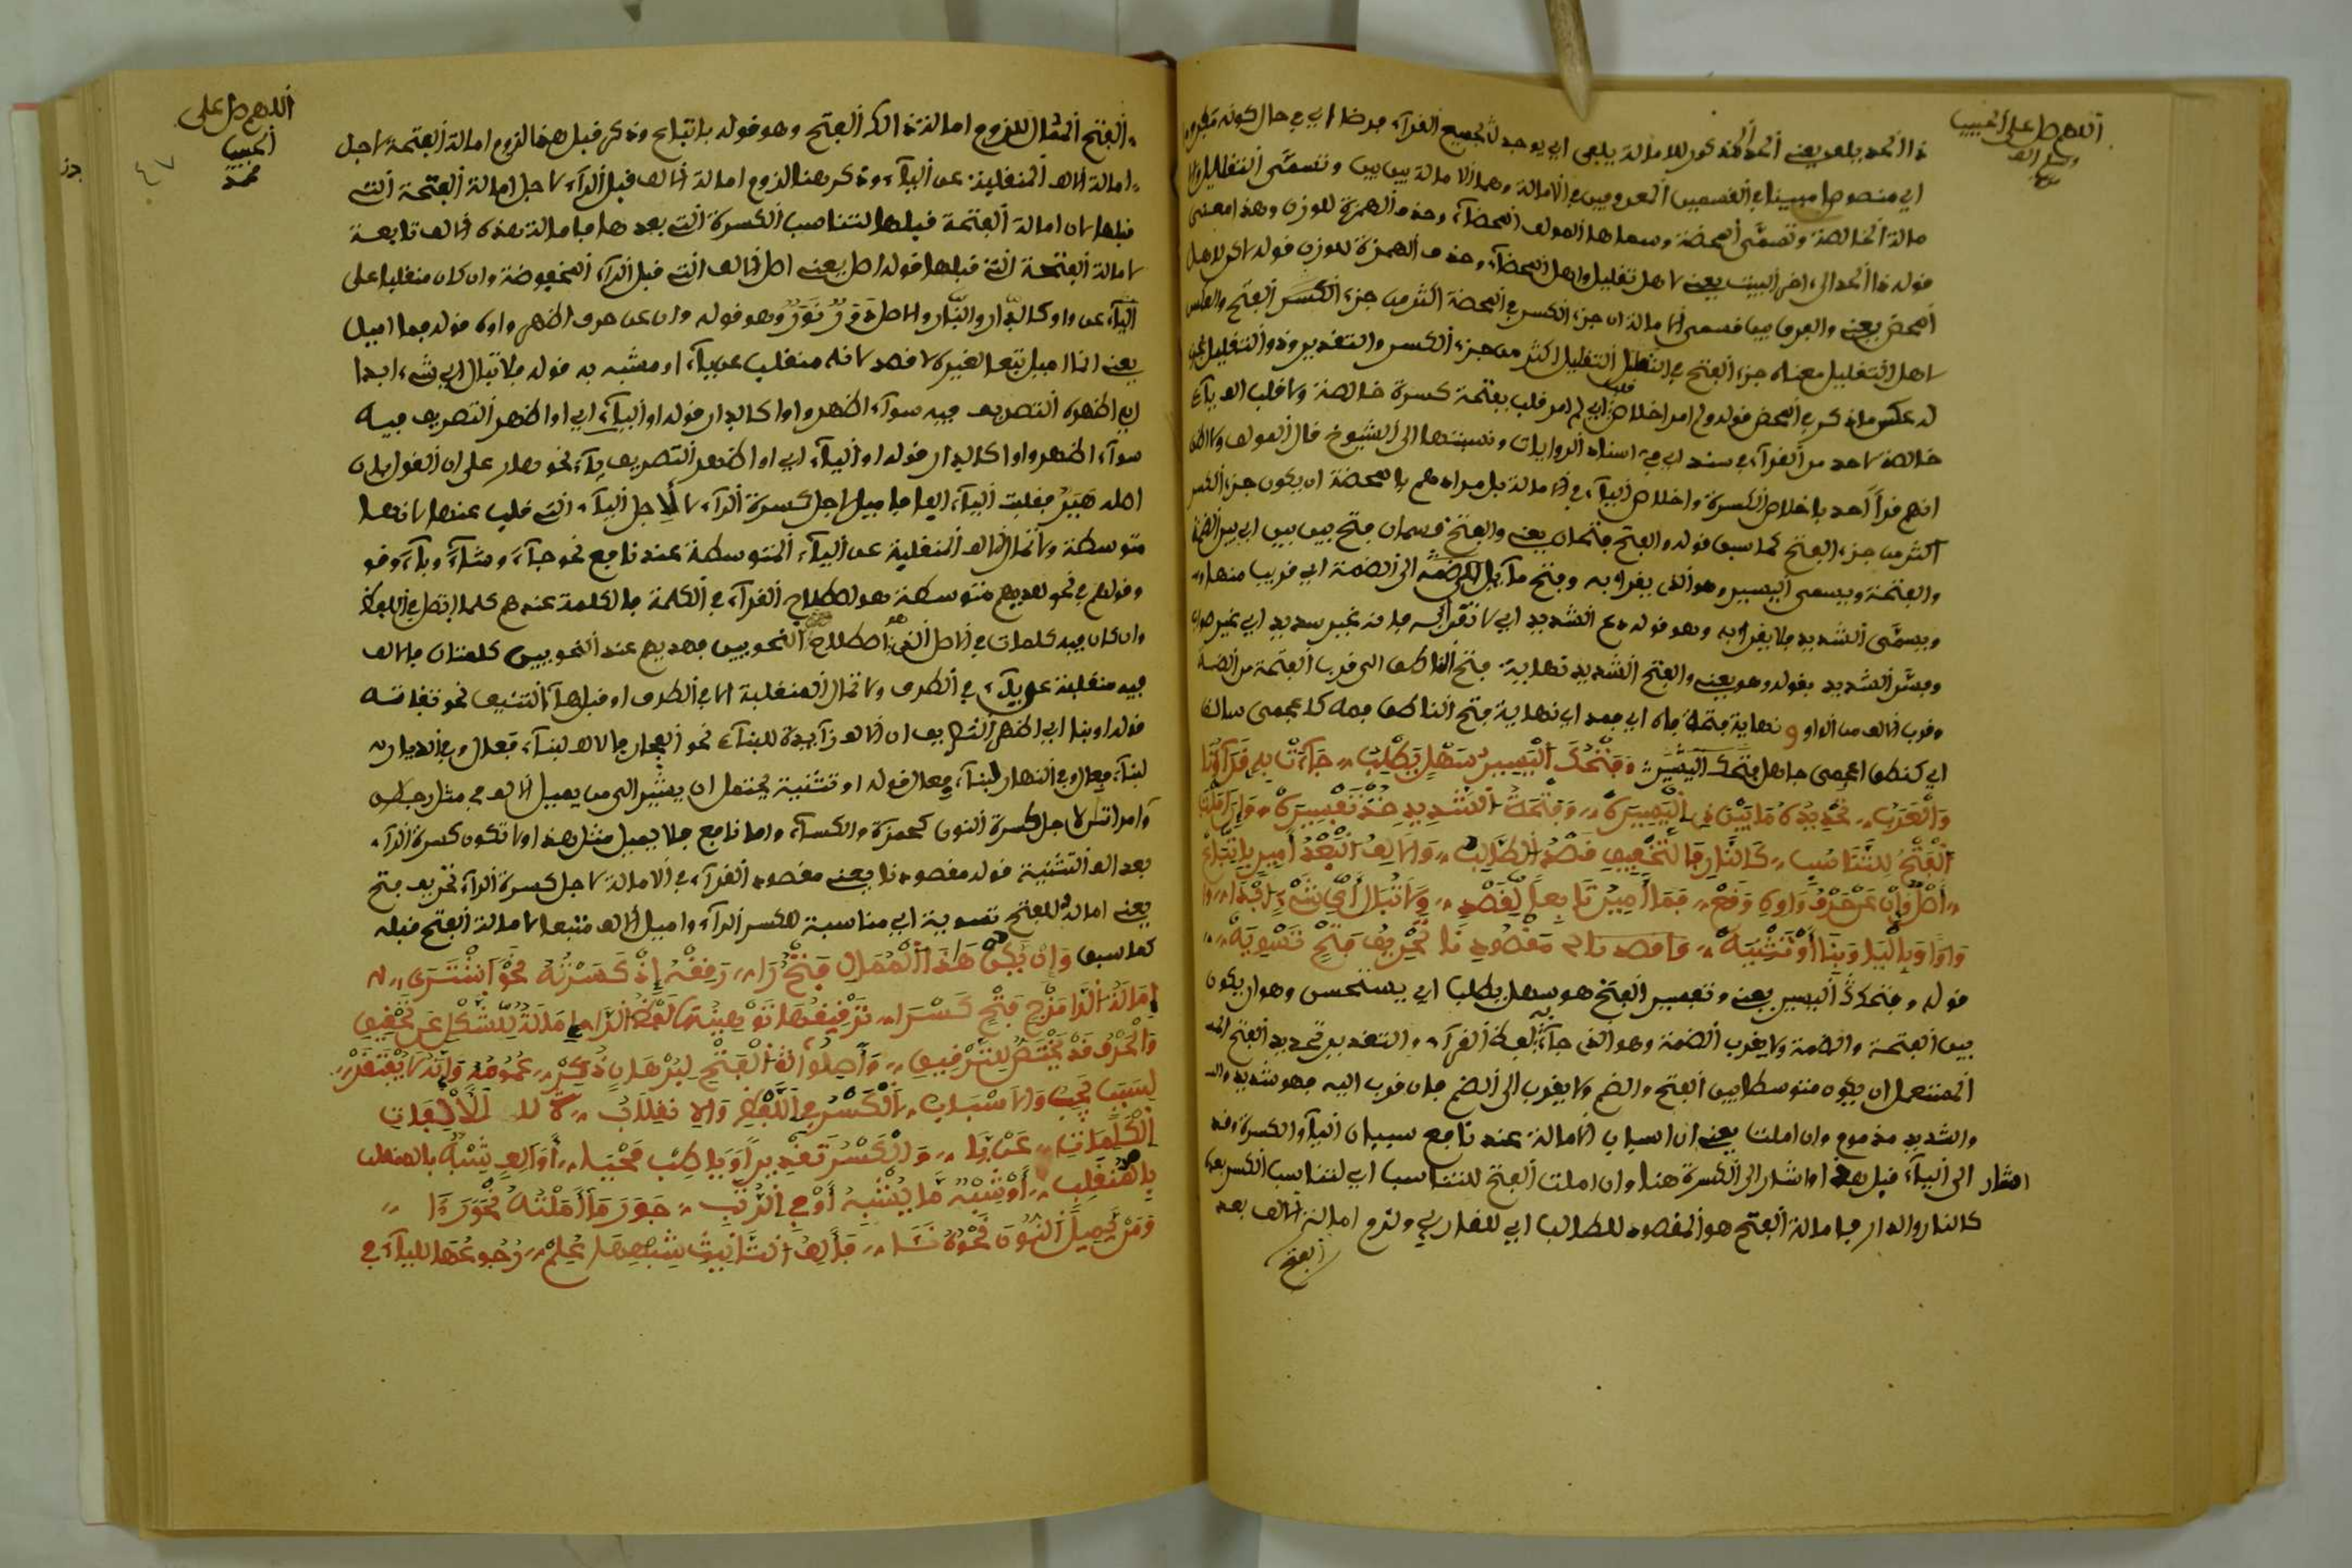 اللهم صل على الحبيب
ذا الحد يلعى يعني الحد المذكور للامالة يلعى اي يوجد لجميع القرآء فرضا اي في حال كونه
اي منصوصا مبينا في القسمين المعروفين في الامالة وهما الامالة بين بين وتسمى التقليل والا
مالة الخالصة وتسمى المحضة وسماها المولف المحضآء وحذف الهمزة للوزن وهذا معنى
قوله ذا الحد الى اخر البيت يعني لاهل تقليل واهل المحضآء وحذف الهمزة للوزن قوله لاكن لاهل
المحض يعني والفرق بين قسمى الامالة ان جزء الكسر في المحضة اكثر من جزء الفتح والعكس
لاهل التقليل معناه جزء الفتح في التقليل اكثر من جزء الكسر والتقدير وذو التقليل
له عكس ما ذكر في المحض قوله ولم امر اخلاص اي لم امر قلب بفتحة كسرة خالصة ولا قلب الف يآء
خالصة لاحد من القرآء في سند اي في اسناد الروايات ونسبتها الى الشيوخ قال المولف ولا اظن
انهم قرأ احد باخلاص الكسرة واخلاص اليآء في الامالة بل مرادهم بالمحضة ان يكون جزء الكسر
اكثر من جزء الفتح كما سبق قوله والفتح فتحان يعني والفتح قسمان فتح بين بين اي بين الضمة
والفتحة ويسمى اليسير وهو الذى يقرا به وفتح مآيل الى الضمة اي قريبا منها
ويسمى الشديد فلا يقرا به وهو قوله دع الشديد اي لا تقرا به فانه غير سديد اي غير صواب
وفسر الشديد بقوله وهو يعني والفتح الشديد نهاية فتح الناطق الى قرب الفتحة من الضمة
وقرب الالف من الواو ونهاية فتحة فاه اي فمه اي نهاية فتح الناطق فمه كاعجمى سالك
اي كنطق اعجمى جاهل فتحك اليسير وفتحك اليسير سهل يطلب جآءت به قرآءتنا
والعرب تحديده ما بين ذي اليسيرة وفتحة الشديد ضد تفسيره وان املت
الفتح للتناسب كالنار فالتخفيف قصد الطالب والالف التبعد امير باتباع
اصل وان عن حرف واوه وقع فما اميل تابعا لقصد ولا تبال اي شيء ابدا
واوا وباليا وبنا او تثنية مقصودنا تحريف فتح تسوية
قوله وفتحك اليسير يعني وتفسير الفتح هو سهل يطلب اي يستحسن وهو ان يكون
بين الفتحة والضمة ولا يقرب الضمة وهو الذى جآء به لفظ القرآء والتقدير تحديد الفتح
المستعمل ان يكون متوسطا بين الفتح والضم ولا يقرب الى الضم فان قرب اليه فهو شديد
والشديد مذموم وان املت يعني ان اسباب الامالة عند نافع سببان اليآء والكسرة وقد
اشار الى اليآء قبل هذا واشار الى الكسرة هنا وان املت الفتح للتناسب اي لتناسب الكسر بعد
كالنار والدار فامالة الفتح هو المقصود للطالب اي للقارئ ولزم امالة الالف بعد
الفتح
اللهم صل على
الحبيب
محمد
٤٧
الفتح الممال للزوم امالة ذالك الفتح وهو قوله باتباع وذكر قبل هذا لزوم امالة الفتحة لاجل
امالة الالف المنقلبة عن اليآء وذكر هنا لزوم امالة الالف قبل الرآء لاجل امالة الفتحة التى
قبلها لان امالة الفتحة قبلها لتناسب الكسرة التى بعدها فامالة هذه الالف تابعة
لامالة الفتحة التى قبلها قوله اصل يعني اصل الالف التى قبل الرآء المخفوضة وان كان منقلبا على
اليآء عن واو كالدار والنار والاصل دور نور وهو قوله وان عن حرف اظهر واوه قوله فما اميل
يعني انما اميل تبعا لغيره لا قصد لانه منقلب عن يآء او مشبه به قوله فلا تبال اي شيء ابدا
اي اظهره التصريف فيه سوآء اظهر واوا كالدار قوله او اليآء اي او اظهر التصريف فيه
سوآء اظهر واوا كالدار قوله او اليآء اي او اظهر التصريف يآء نحو هار على ان القول بان
اصله هير فقلبت اليآء الفا فاميل لاجل كسرة الرآء لا لاجل اليآء التى قلب عنها لانها
متوسطة ولا تمال الالف المنقلبة عن اليآء المتوسطة عند نافع نحو جآء وشآء وبآء
وقولهم في نحو لديهم متوسطة هو اصطلاح القرآء في الكلمة فالكلمة عندهم كلما اتصل في اللفظ
وان كان فيه كلمات في الاصل اصطلاح النحويين فهديهم عند النحويين كلمتان فالالف
فيه منقلبة عن يآء في الطرف ولا تمال المنقلبة الا في الطرف او قبل هآء التانيث نحو تقاته
قوله او بنا اي اظهر التصريف ان الالف زآيدة للبنآء نحو الفجار فالالف لبنآء فعال وفي الديار
لبنآء فعال وفي النهار لبنآء فعال قوله او تثنية يحتمل ان يشير الى من يميل الالف في مثل رجلان
وامراتان لاجل كسرة النون كحمزة والكسآء واما نافع فلا يميل مثل هذا ولا تكون كسرة الرآء
بعد الف التثنية قوله مقصودنا يعني مقصود القرآء في الامالة لاجل كسرة الرآء تحريف فتح
يعني امالة للفتح تسوية اي مناسبة للكسر الرآء واميل الالف متبعا لامالة الفتح قبله
كما سبق وان يكن هذا الممال فتح را رفقه اذ كسرته نحو اشترى
امالة الرا مزج فتح كسرا ترقيقها توهينها لفظ الرا امالة للشكل عن تحقيق
والحرف قد يختص للترقيق واصلوا الفتح لبرهان ذكر عمومه وانه لا يفتقر
لسبب يجب والاسباب الكسر في اللفظ والا نقلاب للالفات
الكلمات عن يا والكسر تقديرا وياكب محيا او الف شبه بالمنقلب
بالمنقلب او شبه ما يشبه او في الرتب جوز ما املته نحو را
ومن يميل النون نحوه نئا فالف التانيث شبهها علم رجوعها لليآء في